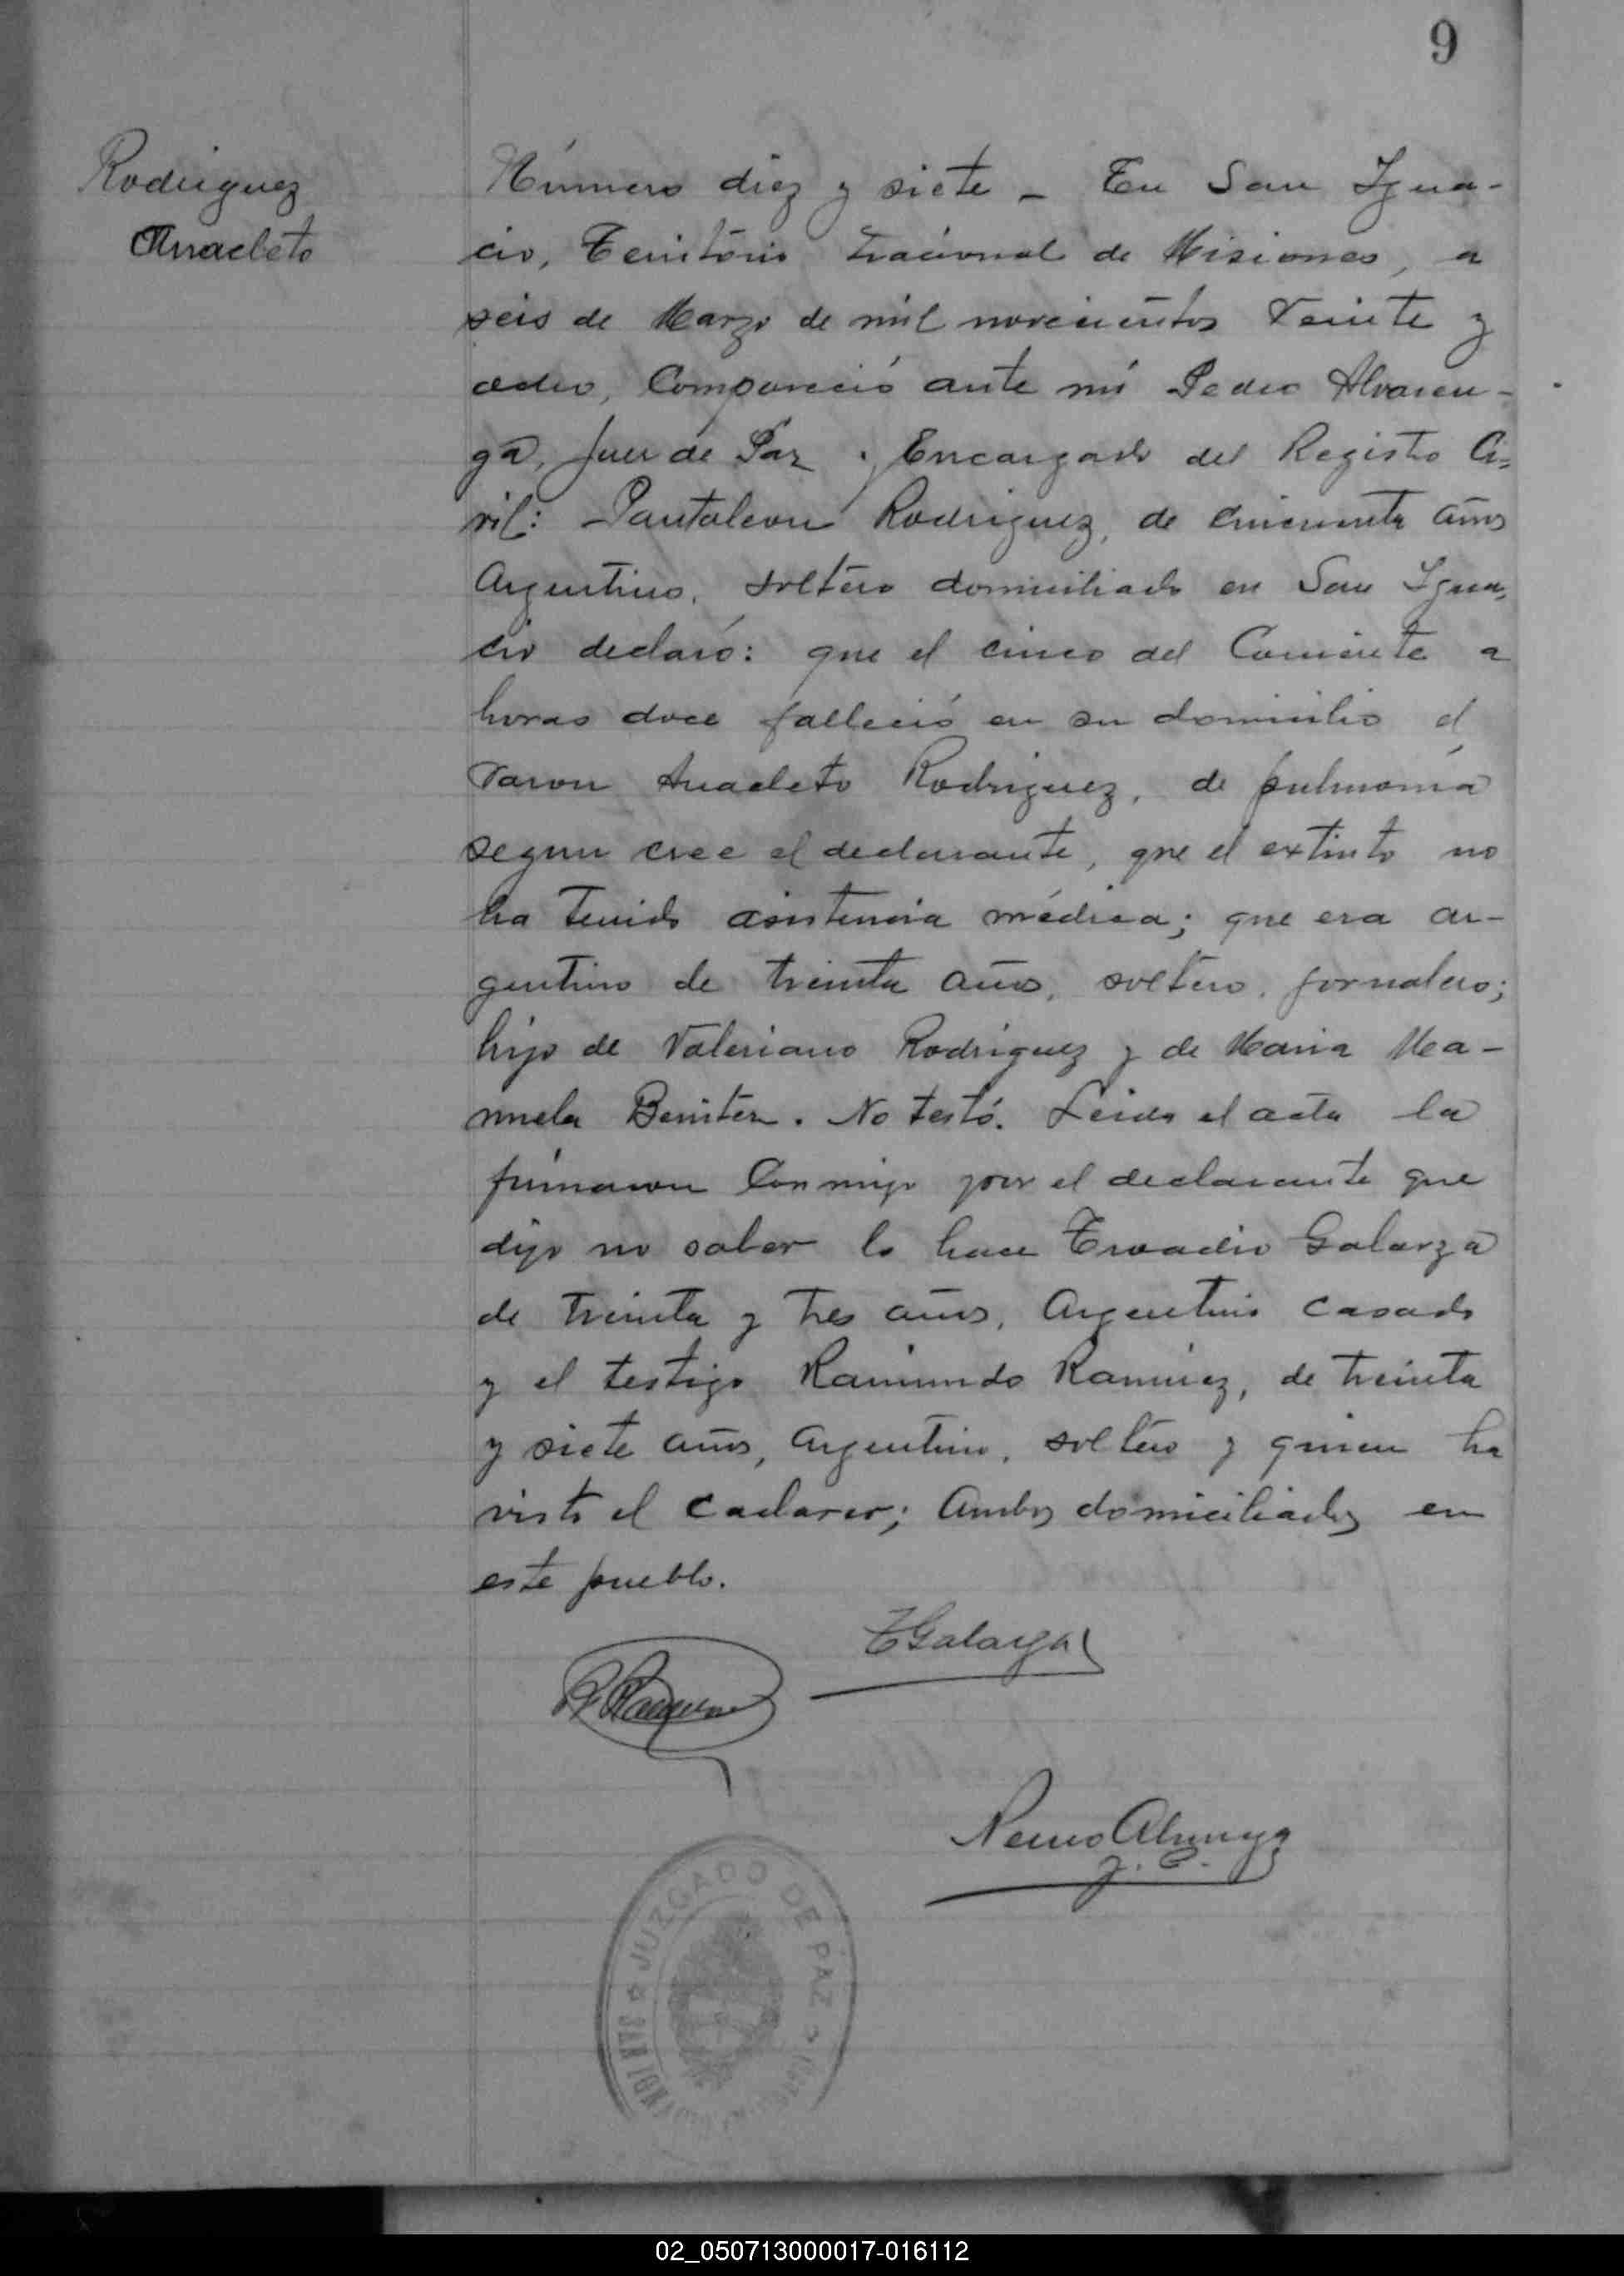 9
Rodriguez
Anacleto
Número diez y siete - En San Igna-
cio, Territorio Nacional de Misiones, a
seis de Marzo de mil novecientos veinte y
ocho, Compareció ante mi Pedro Alvaren-
ga, Juez de Paz y Encargado del Registro Ci-
vil: Pantaleon Rodriguez, de cincuenta años
Argentino, soltero domiciliado en San Igna-
cio declaró: que el cinco del Corriente a
horas doce falleció en su domicilio el
varon Anacleto Rodriguez, de pulmonía
segun cree el declarante, que el extinto no
ha tenido asistencia médica; que era ar-
gentino de treinta años, soltero, jornalero;
hijo de Valeriano Rodriguez y de Maria Ma-
nuela Benitez. No testó. Leida el acta la
firmaron Conmigo por el declarante que
dijo no saber lo hace Galarza
de treinta y tres años, Argentino casado
y el testigo Raimundo Ramirez, de treinta
y siete años, Argentino, soltero y quien ha
visto el cadaver; Ambos domiciliados en
este pueblo.
TGalarza
R Ramirez
Pedro Alvarenga
J. P.
JUZGADO DE PAZ
SAN IGNACIO
02_050713000017-016112